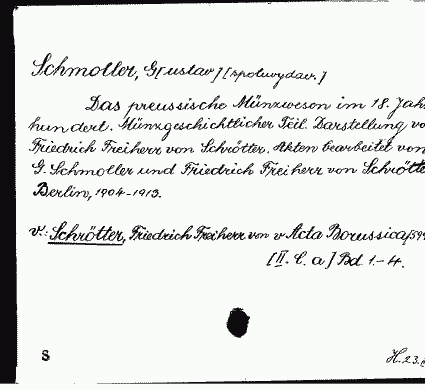 Schmoller, G[ustav] [spoluvydav.]
Das preussische Münzweson im 18. Jahr
hundert. Münzgeschichtlicher Teil. Darstellung vo
Friedrich Freiherr von Schrötter. Akten bearbeitet von
G. Schmoller und Friedrich Freiherr von Schrötte
Berlin, 1904-1913.
v.: Schrötter, Friedrich Freiherr von v Acta Borussica,
[II. C. a] Bd 1.-4.
S
H. 23.